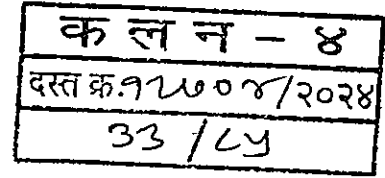 क ल न - ४
दस्त क्र.१२७०४/२०२४
३३ /८५